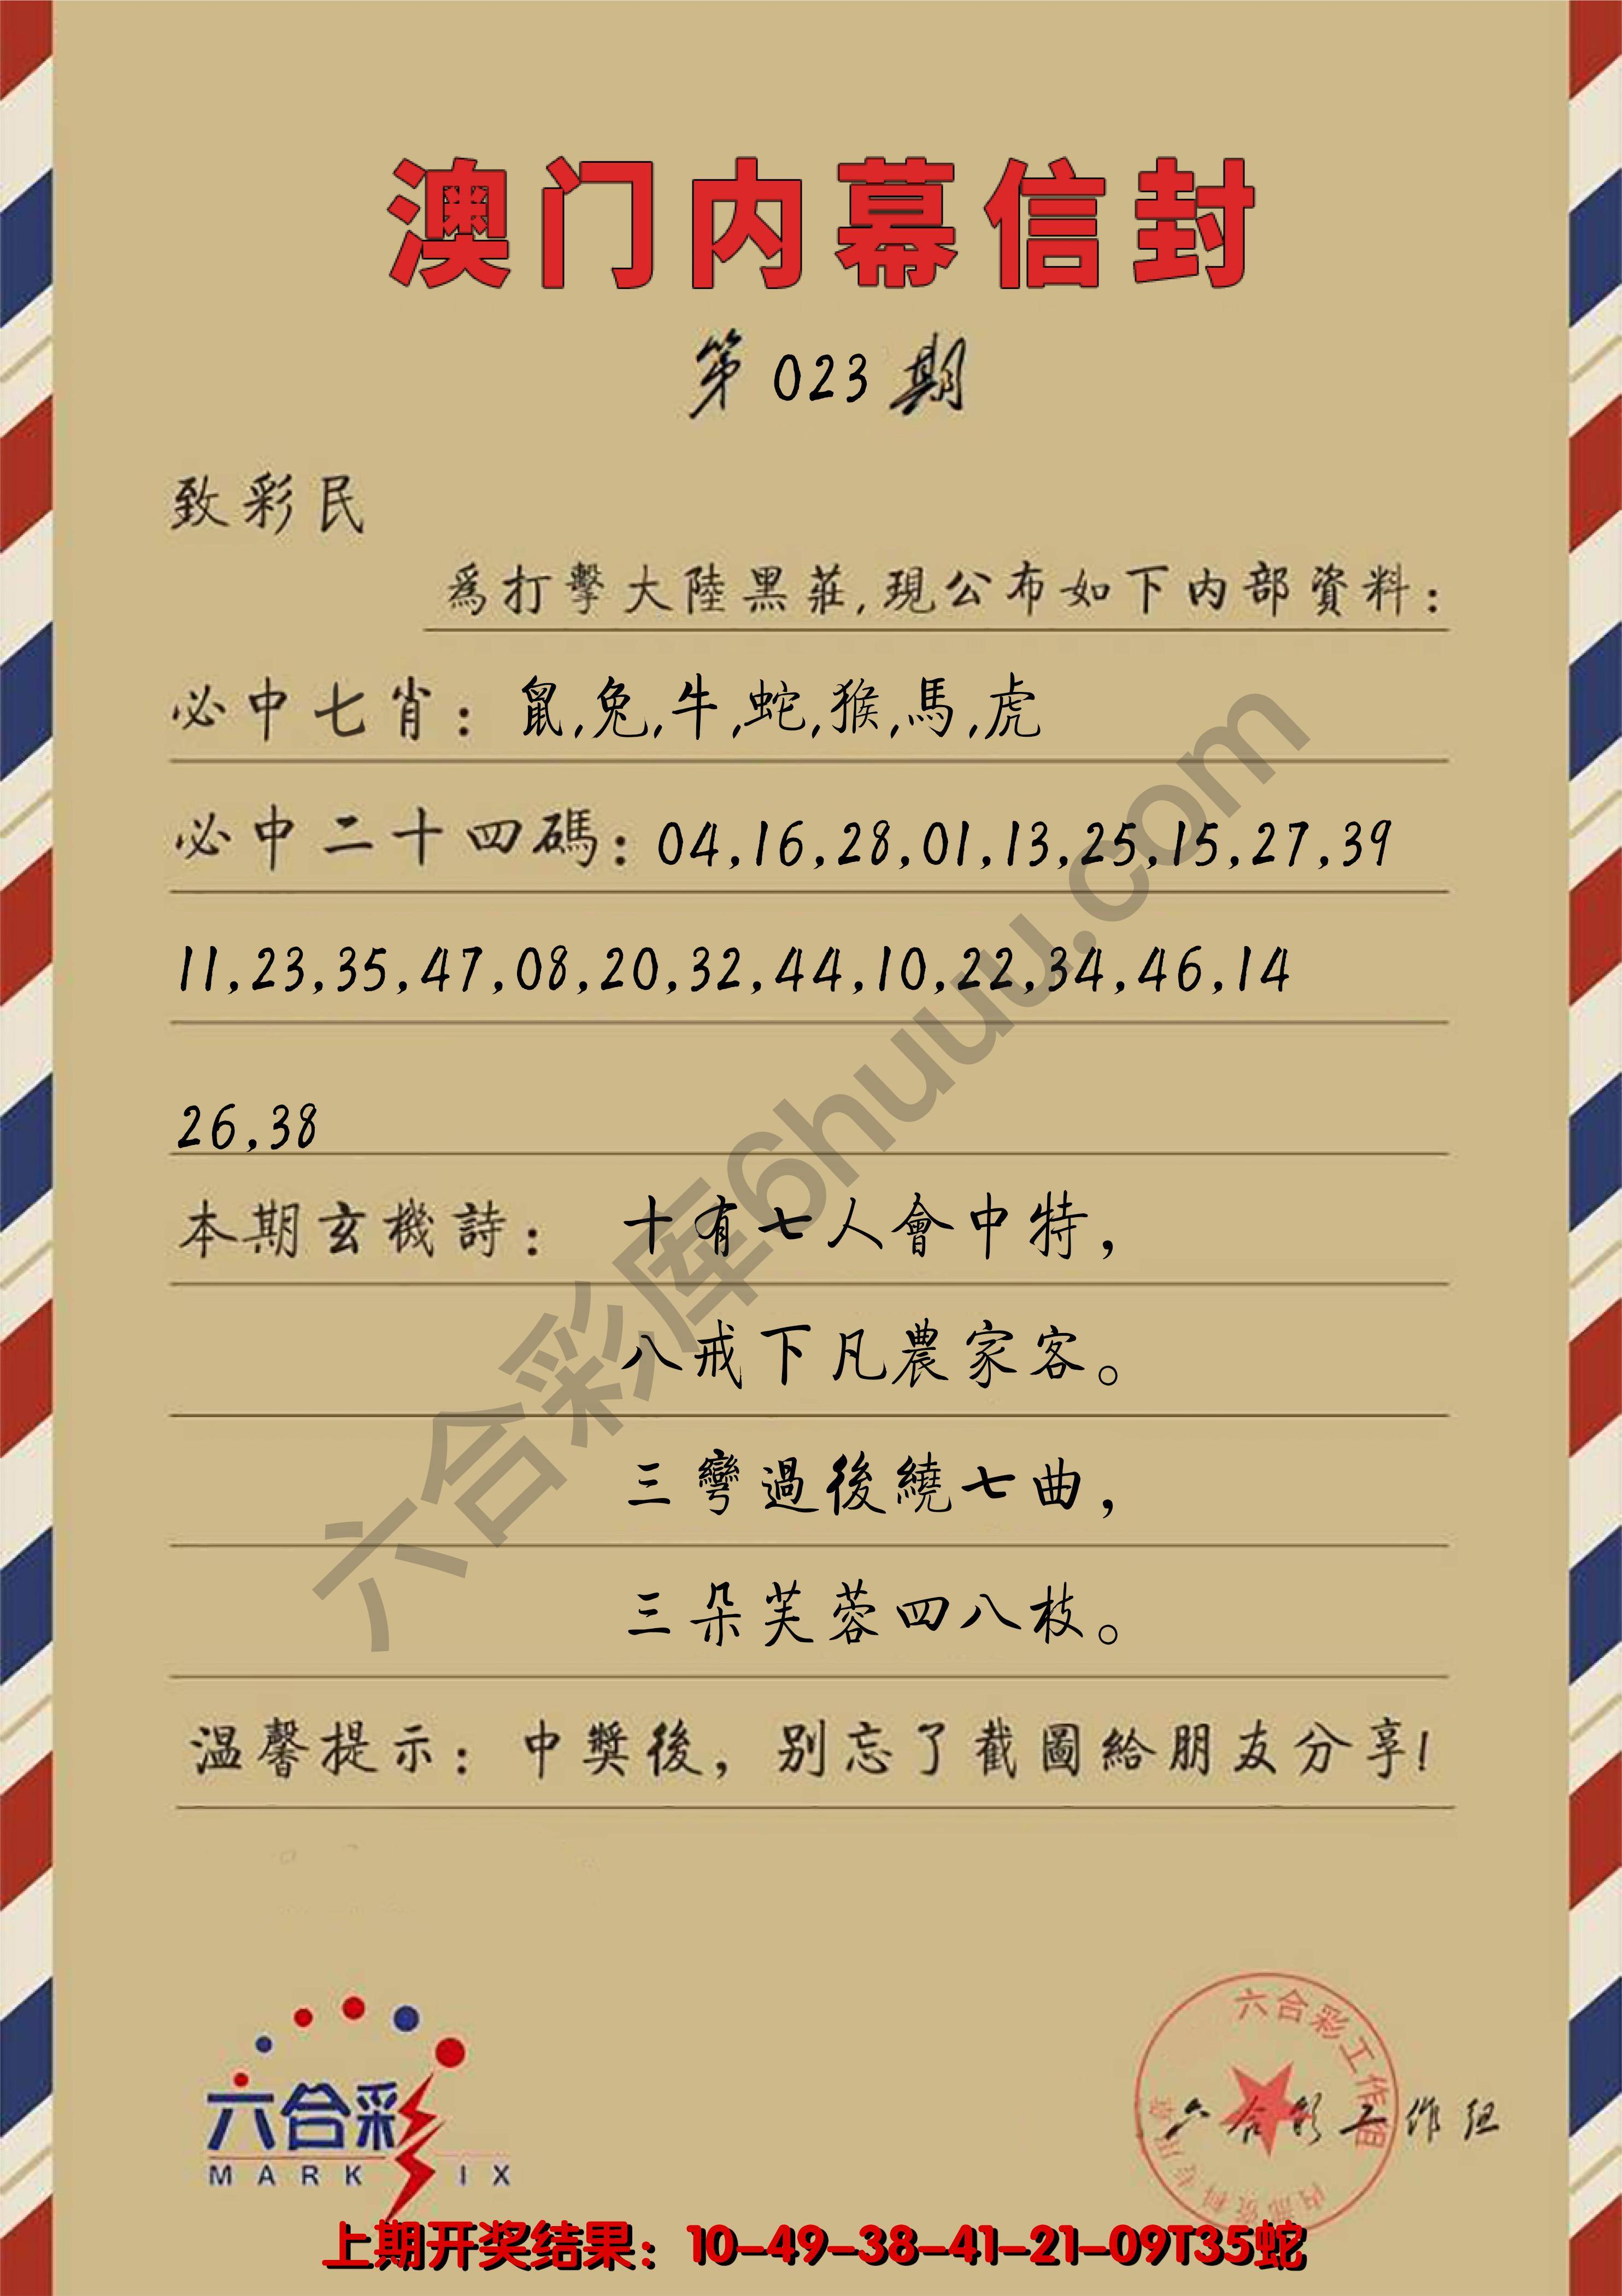 澳门内幕信封
第023期
致彩民
爲打擊大陸黑莊,現公布如下内部資料:
必中七肖: 鼠,兔,牛,蛇,猴,馬,虎
必中二十四碼:04,16,28,01,13,25,15,27,39
11,23,35,47,08,20,32,44,10,22,34,46,14
26,38
本期玄機詩: 十有七人會中特,
八戒下凡農家客。
三彎過後繞七曲,
三朵芙蓉四八枝。
温馨提示:中獎後,别忘了截圖給朋友分享!
六合彩库6huuu.com
六合彩
MARK IX
六合彩工作组
内部资料专用章
六合彩工作组
上期开奖结果:10-49-38-41-21-09T35蛇